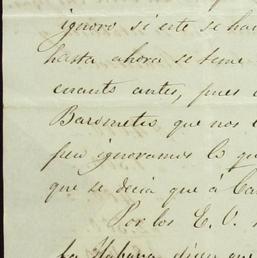 ignoro si este se ha
hasta ahora se teme
cuanto antes, pues
Barometro que nos
ignoramos lo qu
que se decia que á Ca
Por los E. U.
La Habana dicen que